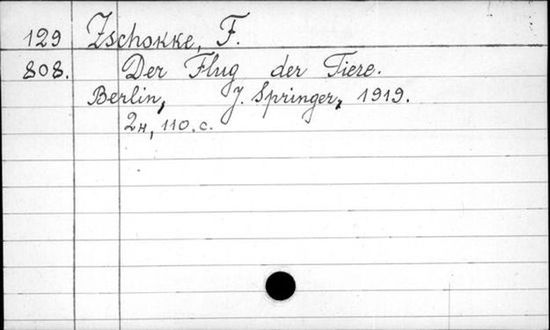 129 Zschokke, F.
808. Der Flug der Tiere.
Berlin, J. Springer, 1919.
2н, 110.c.